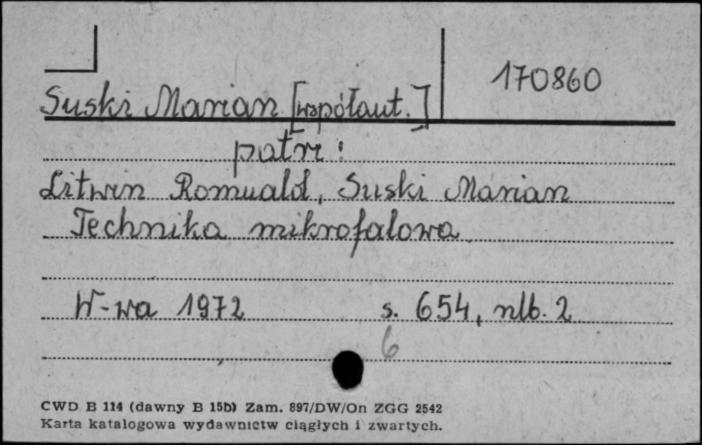 170860
Suski Marian [współaut.]
patrz:
Litwin Romuald, Suski Marian
Technika mikrofalowa
W-wa 1972 s. 654, nlb. 2
6
CWD B 114 (dawny B 15b) Zam. 897/DW/On ZGG 2542
Karta katalogowa wydawnictw ciągłych i zwartych.